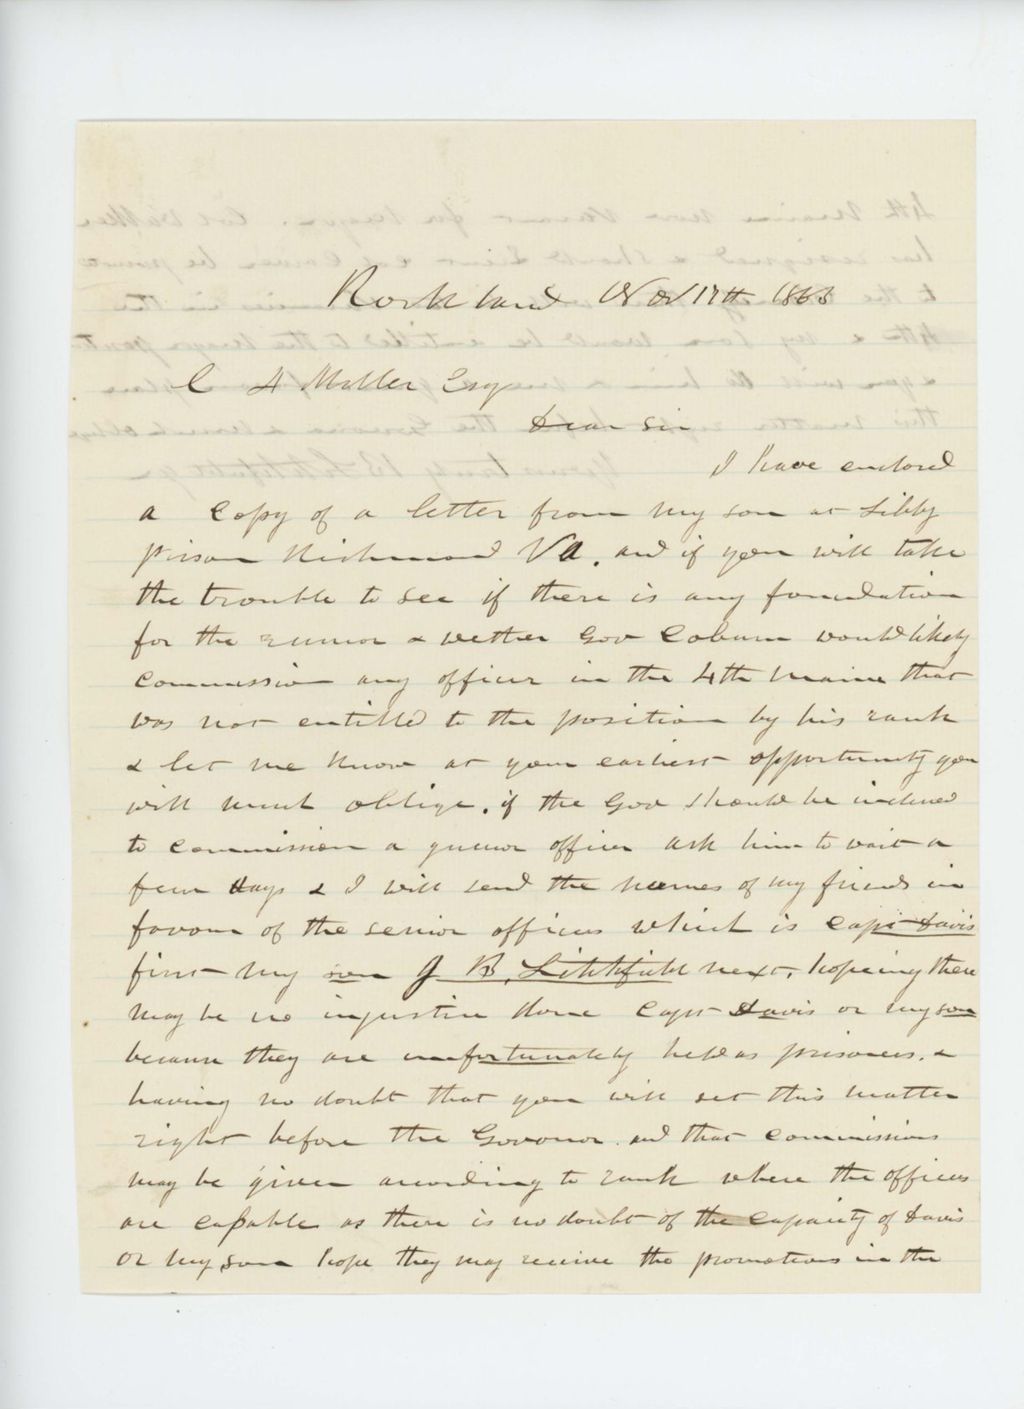 Rockland Nov 17th 1863
C A Miller Esqr
Dear Sir
I have enclosed
a copy of a letter from my son at Libby
prison Richmond Va. and if you will take
the trouble to see if there is any foundation
for the rumor & wether Gov Coburn would likely
commission any officer in the 4th Maine that
was not entitled to the position by his rank
& let me know at your earliest opportunity you
will much oblige. if the Gov should be inclined
to commission a junior officer ask him to wait a
few days & I will send the names of my friends in
favour of the senior officers which is Capt Davis
first my son J B. Litchfield next. hopeing there
may be no injustice done Capt Davis or my son
because they are unfortunately held as prisoners. &
having no doubt that you will set this matter
right before the Govonor. and that commissions
may be given according to rank where the officers
are capable as there is no doubt of the capacity of Davis
or my son hope they may receive the promotions in the